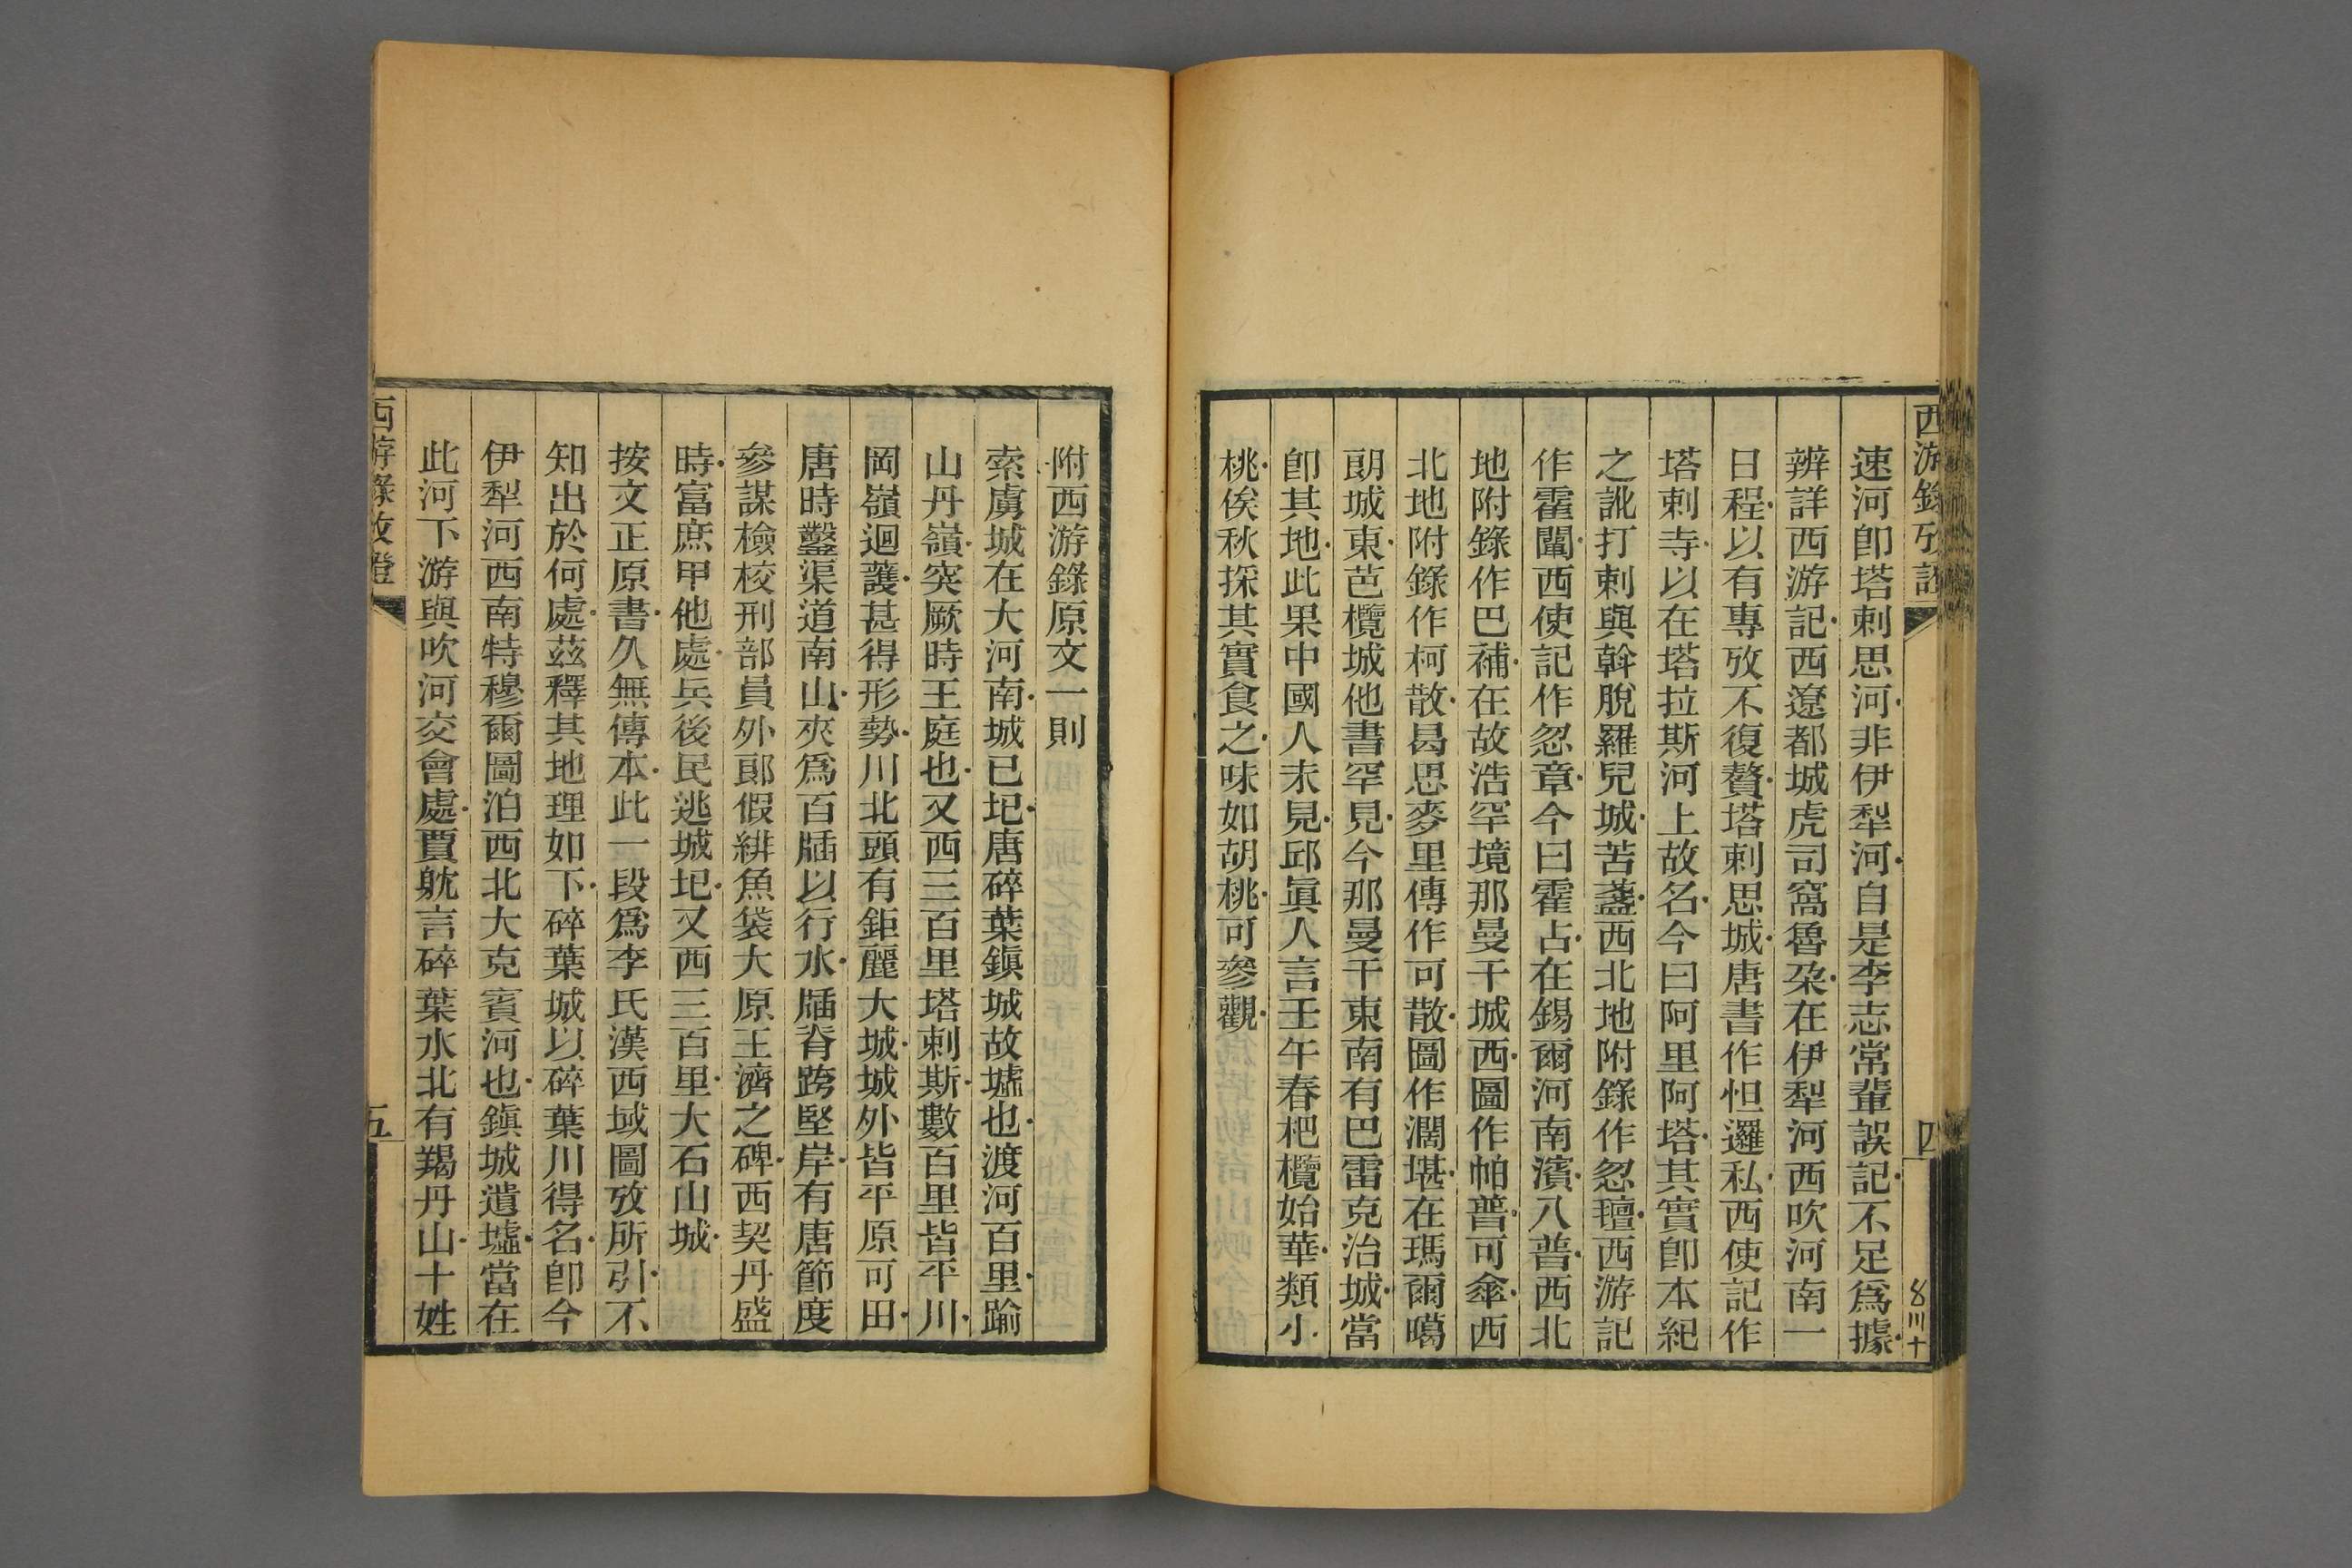 西游錄攷證
四
速河卽塔剌思河非伊犁河自是李志常輩誤記不足爲據
辨詳西游記西遼都城虎司窩魯朶在伊犁河西吹河南一
日程以有專攷不復贅塔剌思城唐書作怛邏私西使記作
塔剌寺以在塔拉斯河上故名今曰阿里阿塔其實卽本紀
之訛打剌與斡脫羅兒城苦盞西北地附錄作忽㽂西游記
作霍闡西使記作忽章今曰霍占在錫爾河南濱八普西北
地附錄作巴補在故浩罕境那曼干城西圖作帕普可傘西
北地附錄作柯散曷思麥里傳作可散圖作濶堪在瑪爾噶
朗城東芭欖城他書罕見今那曼干東南有巴雷克治城當
卽其地此果中國人未見邱眞人言壬午春杷欖始華類小
桃俟秋採其實食之味如胡桃可參觀
附西游錄原文一則
索虜城在大河南城已圯唐碎葉鎭城故墟也渡河百里踰
山丹嶺突厥時王庭也又西三百里塔剌斯數百里皆平川
岡嶺迴護甚得形勢川北頭有鉅麗大城城外皆平原可田
唐時鑿渠道南山夾爲百牐以行水牐脊跨堅岸有唐節度
參謀檢校刑部員外郎假緋魚袋大原王濟之碑西契丹盛
時富庶甲他處兵後民逃城圯又西三百里大石山城
按文正原書久無傳本此一段爲李氏漢西域圖攷所引不
知出於何處茲釋其地理如下碎葉城以碎葉川得名卽今
伊犁河西南特穆爾圖泊西北大克賓河也鎭城遺墟當在
此河下游與吹河交會處賈躭言碎葉水北有羯丹山十姓
西游錄攷證
五